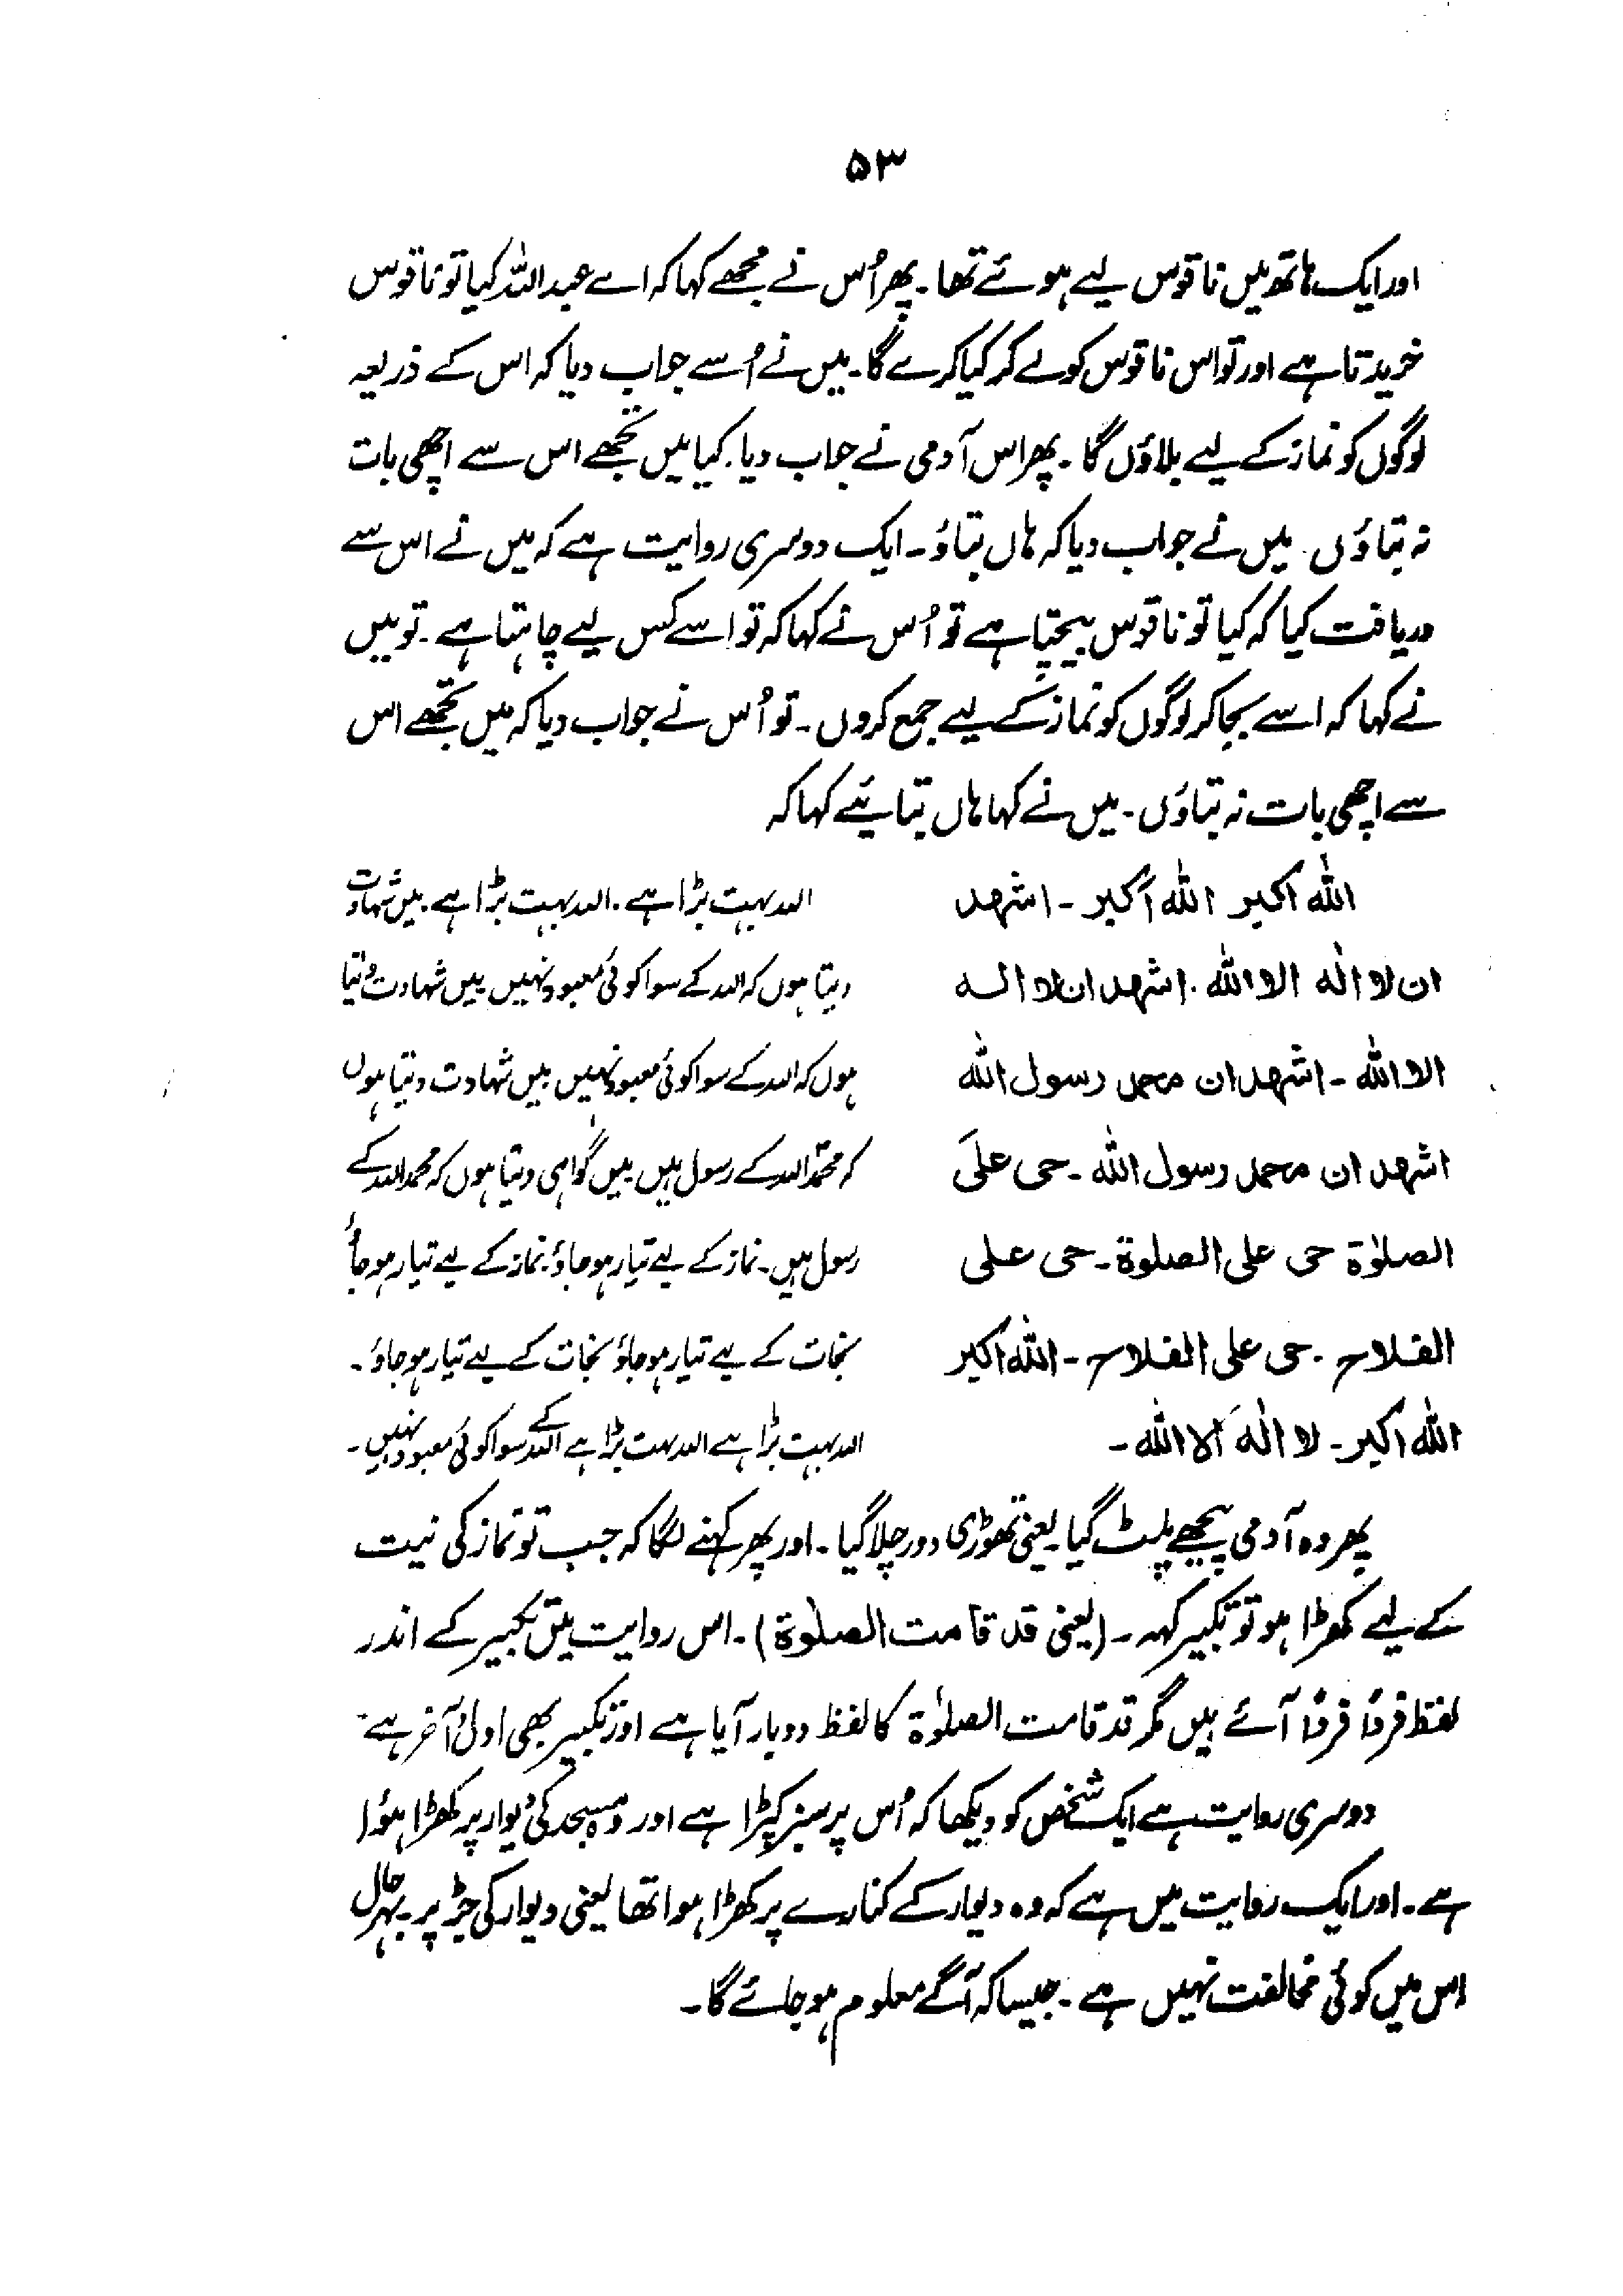 ۵۳
اور ایک ہاتھ میں ناقوس لیے ہوئے تھا۔ پھر اُس نے مجھے کہا کہ اے عبداللہ کیا تو ناقوس
خریدتا ہے اور تو اس ناقوس کو لے کر کیا کرے گا۔ میں نے اُسے جواب دیا کہ اس کے ذریعہ
لوگوں کو نماز کے لیے بلاؤں گا۔ پھر اس آدمی نے جواب دیا۔ کیا میں تجھے اس سے اچھی بات
نہ بتاؤں۔ میں نے جواب دیا کہ ہاں بتاؤ۔ ایک دوسری روایت ہے کہ میں نے اس سے
دریافت کیا کہ کیا تو ناقوس بیچتا ہے تو اُس نے کہا کہ تو اسے کس لیے چاہتا ہے۔ تو میں
نے کہا کہ اسے بجا کر لوگوں کو نماز کے لیے جمع کروں۔ تو اُس نے جواب دیا کہ میں تجھے اس
سے اچھی بات نہ بتاؤں۔ میں نے کہا ہاں بتائیے کہا کہ
اللہ اکبر اللہ اکبر۔ اشهد
ان لا الٰہ الا اللہ۔ اشهد ان لا الہ
الا اللہ۔ اشهد ان محمد رسول اللہ
اشهد ان محمد رسول اللہ۔ حی علیَ
الصلوٰۃ حی علی الصلوۃ۔ حی علی
الفلاح۔ حی علی الفلاح۔ اللہ اکبر
اللہ اکبر۔ لا الٰہَ الا اللہ۔
اللہ بہت بڑا ہے۔ اللہ بہت بڑا ہے۔ میں شہادت
دیتا ہوں کہ اللہ کے سوا کوئی معبود نہیں میں شہادت دیتا
ہوں کہ اللہ کے سوا کوئی معبود نہیں میں شہادت دیتا ہوں
کہ محمدؐ اللہ کے رسول ہیں میں گواہی دیتا ہوں کہ محمد اللہ کے
رسول ہیں۔ نماز کے لیے تیار ہو جاؤ۔ نماز کے لیے تیار ہو جاؤ
نجات کے لیے تیار ہو جاؤ نجات کے لیے تیار ہو جاؤ۔
اللہ بہت بڑا ہے اللہ بہت بڑا ہے اللہ کے سوا کوئی معبود نہیں۔
پھر وہ آدمی پیچھے پلٹ گیا۔ یعنی تھوڑی دور چلا گیا۔ اور پھر کہنے لگا کہ جب تو نماز کی نیت
کے لیے کھڑا ہو تو تکبیر کہہ۔ (یعنی قد قامت الصلوٰۃ)۔ اس روایت میں تکبیر کے اندر
لفظ فرداً فرداً آئے ہیں مگر قد قامت الصلوٰۃ کا لفظ دو بار آیا ہے اور تکبیر بھی اول و آخر ہے۔
دوسری روایت ہے ایک شخص کو دیکھا کہ اُس پر سبز کپڑا ہے اور وہ مسجد کی دیوار پر کھڑا ہوا
ہے۔ اور ایک روایت میں ہے کہ وہ دیوار کے کنارے پر کھڑا ہوا تھا یعنی دیوار کی جڑ پر۔ بہر حال
اس میں کوئی مخالفت نہیں ہے۔ جیسا کہ آگے معلوم ہو جائے گا۔